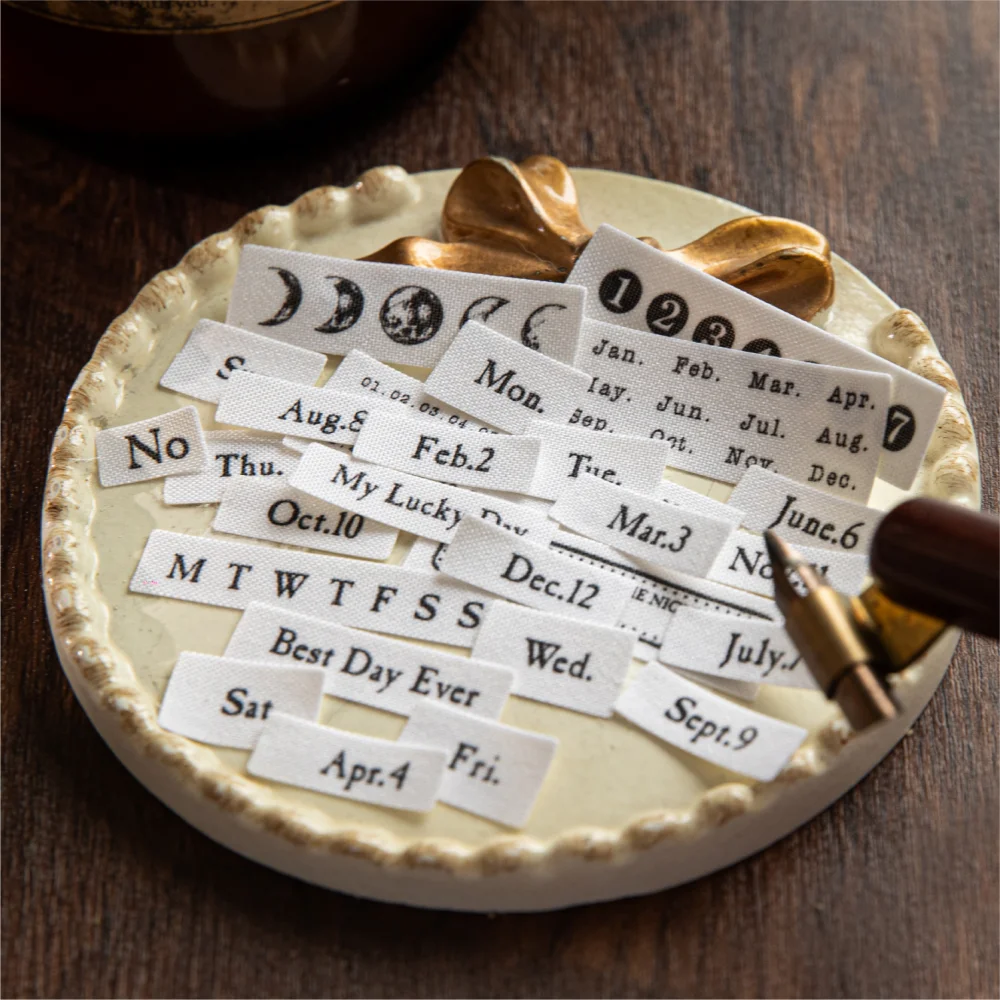 you.
1 2 3
7
Jan. Feb. Mar. Apr.
Jun. Jul. Aug.
Sep. Oct. Nov. Dec.
Mon.
01. 02. 03. 04
Aug.8
Feb.2
No
Thu.
Tue.
My Lucky Day
Mar.3
June.6
Oct.10
Dec.12
M T W T F S S
July.7
Best Day Ever
Wed.
Sat
Sept.9
Apr.4
Fri.